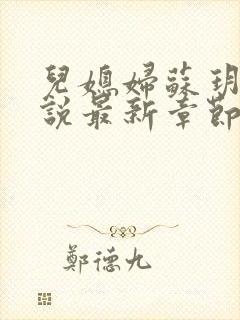 兒媳婦蘇玥
說最新章節
鄭德九